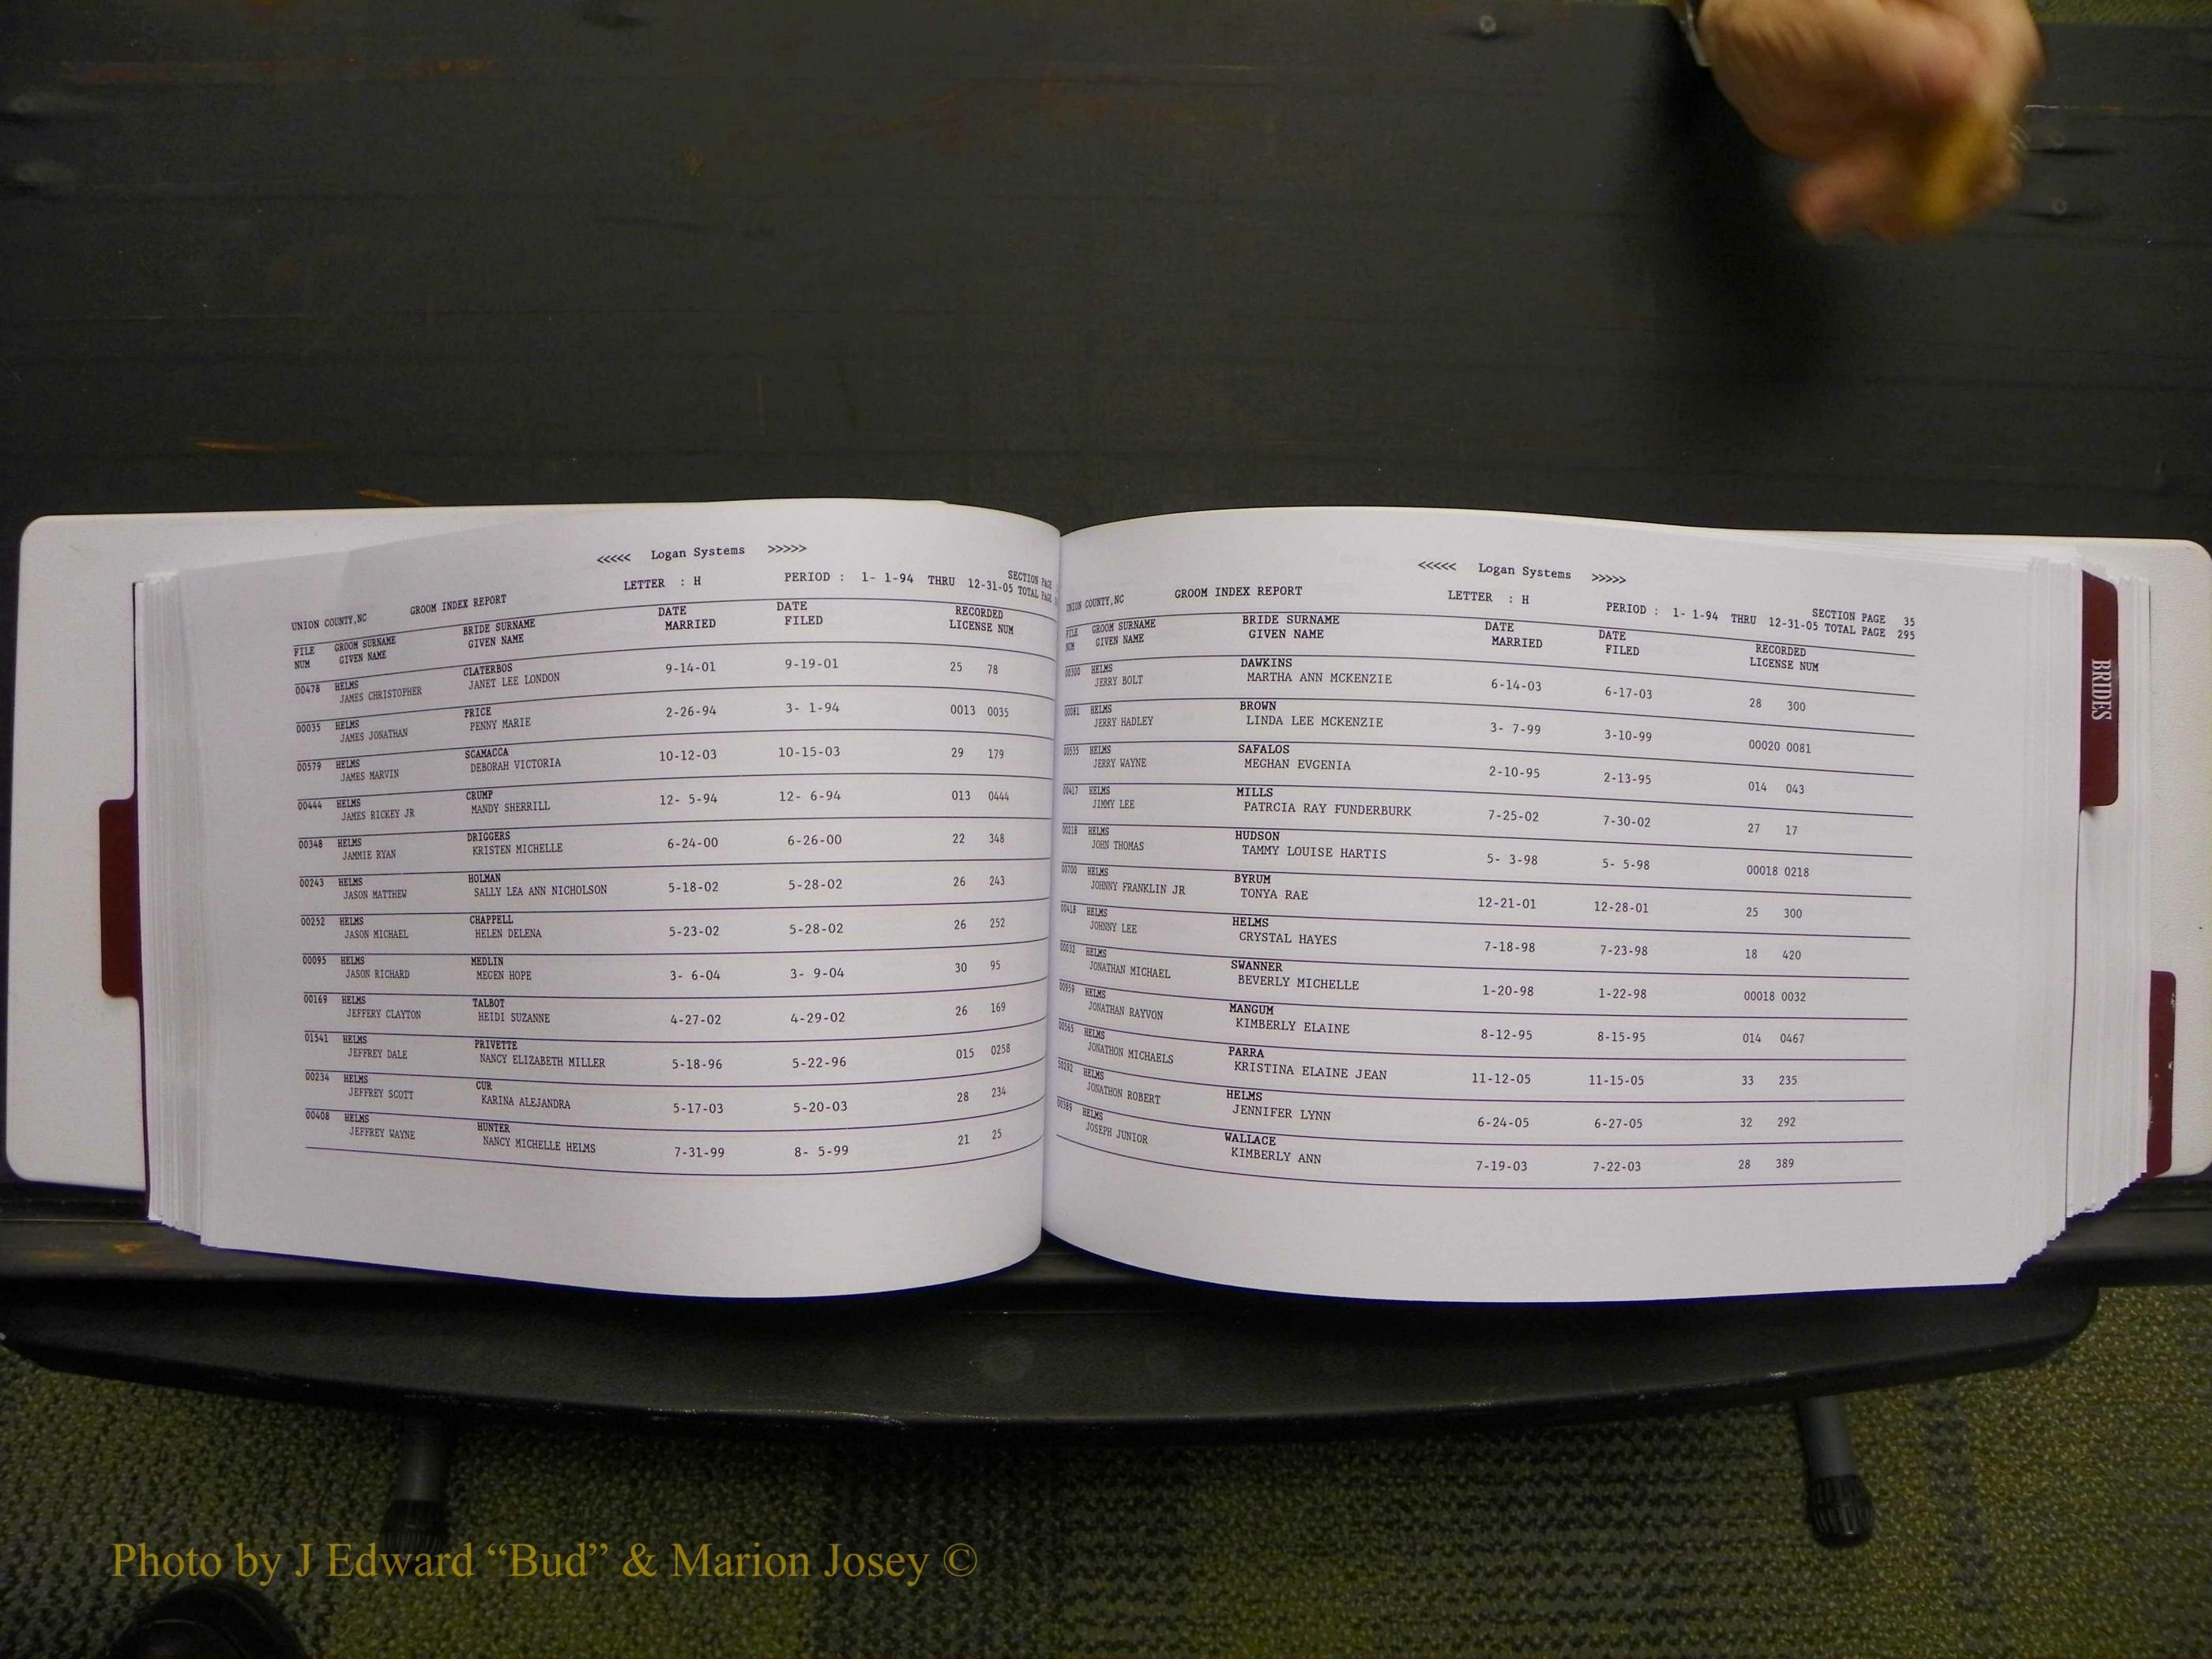 <<<<< Logan Systems >>>>>
UNION COUNTY,NC GROOM INDEX REPORT LETTER : H PERIOD : 1- 1-94 THRU 12-31-05 SECTION PAGE
TOTAL PAGE
FILE GROOM SURNAME BRIDE SURNAME DATE DATE RECORDED
NUM GIVEN NAME GIVEN NAME MARRIED FILED LICENSE NUM
00478 HELMS CLATERBOS 9-14-01 9-19-01 25 78
JAMES CHRISTOPHER JANET LEE LONDON
00035 HELMS PRICE 2-26-94 3- 1-94 0013 0035
JAMES JONATHAN PENNY MARIE
00579 HELMS SCAMACCA 10-12-03 10-15-03 29 179
JAMES MARVIN DEBORAH VICTORIA
00444 HELMS CRUMP 12- 5-94 12- 6-94 013 0444
JAMES RICKEY JR MANDY SHERRILL
00348 HELMS DRIGGERS 6-24-00 6-26-00 22 348
JAMMIE RYAN KRISTEN MICHELLE
00243 HELMS HOLMAN 5-18-02 5-28-02 26 243
JASON MATTHEW SALLY LEA ANN NICHOLSON
00252 HELMS CHAPPELL 5-23-02 5-28-02 26 252
JASON MICHAEL HELEN DELENA
00095 HELMS MEDLIN 3- 6-04 3- 9-04 30 95
JASON RICHARD MEGEN HOPE
00169 HELMS TALBOT 4-27-02 4-29-02 26 169
JEFFERY CLAYTON HEIDI SUZANNE
01541 HELMS PRIVETTE 5-18-96 5-22-96 015 0258
JEFFREY DALE NANCY ELIZABETH MILLER
00234 HELMS CUR 5-17-03 5-20-03 28 234
JEFFREY SCOTT KARINA ALEJANDRA
00408 HELMS HUNTER 7-31-99 8- 5-99 21 25
JEFFREY WAYNE NANCY MICHELLE HELMS
<<<<< Logan Systems >>>>>
UNION COUNTY,NC GROOM INDEX REPORT LETTER : H PERIOD : 1- 1-94 THRU 12-31-05 SECTION PAGE 35
TOTAL PAGE 295
FILE GROOM SURNAME BRIDE SURNAME DATE DATE RECORDED
NUM GIVEN NAME GIVEN NAME MARRIED FILED LICENSE NUM
00300 HELMS DAWKINS 6-14-03 6-17-03 28 300
JERRY BOLT MARTHA ANN MCKENZIE
00081 HELMS BROWN 3- 7-99 3-10-99 00020 0081
JERRY HADLEY LINDA LEE MCKENZIE
00535 HELMS SAFALOS 2-10-95 2-13-95 014 043
JERRY WAYNE MEGHAN EVGENIA
00417 HELMS MILLS 7-25-02 7-30-02 27 17
JIMMY LEE PATRCIA RAY FUNDERBURK
00218 HELMS HUDSON 5- 3-98 5- 5-98 00018 0218
JOHN THOMAS TAMMY LOUISE HARTIS
00700 HELMS BYRUM 12-21-01 12-28-01 25 300
JOHNNY FRANKLIN JR TONYA RAE
00418 HELMS HELMS 7-18-98 7-23-98 18 420
JOHNNY LEE CRYSTAL HAYES
00032 HELMS SWANNER 1-20-98 1-22-98 00018 0032
JONATHAN MICHAEL BEVERLY MICHELLE
00959 HELMS MANGUM 8-12-95 8-15-95 014 0467
JONATHAN RAYVON KIMBERLY ELAINE
00565 HELMS PARRA 11-12-05 11-15-05 33 235
JONATHON MICHAELS KRISTINA ELAINE JEAN
HELMS HELMS 6-24-05 6-27-05 32 292
JONATHON ROBERT JENNIFER LYNN
00389 HELMS WALLACE 7-19-03 7-22-03 28 389
JOSEPH JUNIOR KIMBERLY ANN
BRIDES
Photo by J Edward “Bud” & Marion Josey ©